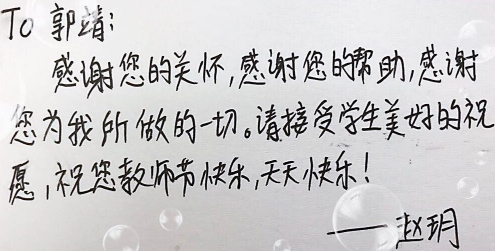 To 郭靖:
感谢您的关怀,感谢您的帮助,感谢
您为我所做的一切。请接受学生美好的祝
愿,祝您教师节快乐,天天快乐!
——赵玥